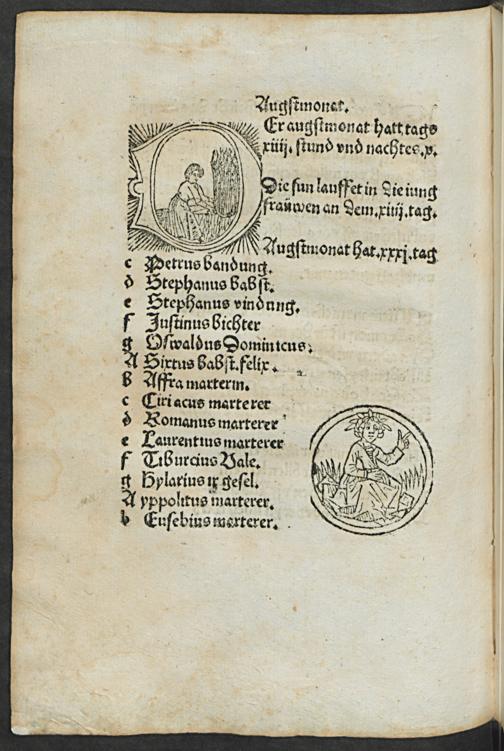 Augstmonat.
Er augstmonat hatt tags
xiiij. stund vnd nachtes .x.
Die sun lauffet in die iung
frauwen an dem .xiiij. tag.
Augstmonat hat .xxxj. tag
c Petrus bandung.
d Stephanus babst.
e Stephanus vindung.
f Justinus bichter
g Oswaldus Dominicus.
A Sixtus babst. felix.
b Affra marterin.
c Ciriacus marterer
d Romanus marterer
e Laurentius marterer
f Tiburcius Vale.
g Hylarius ix gesel.
A yppolitus marterer.
b Eusebius marterer.